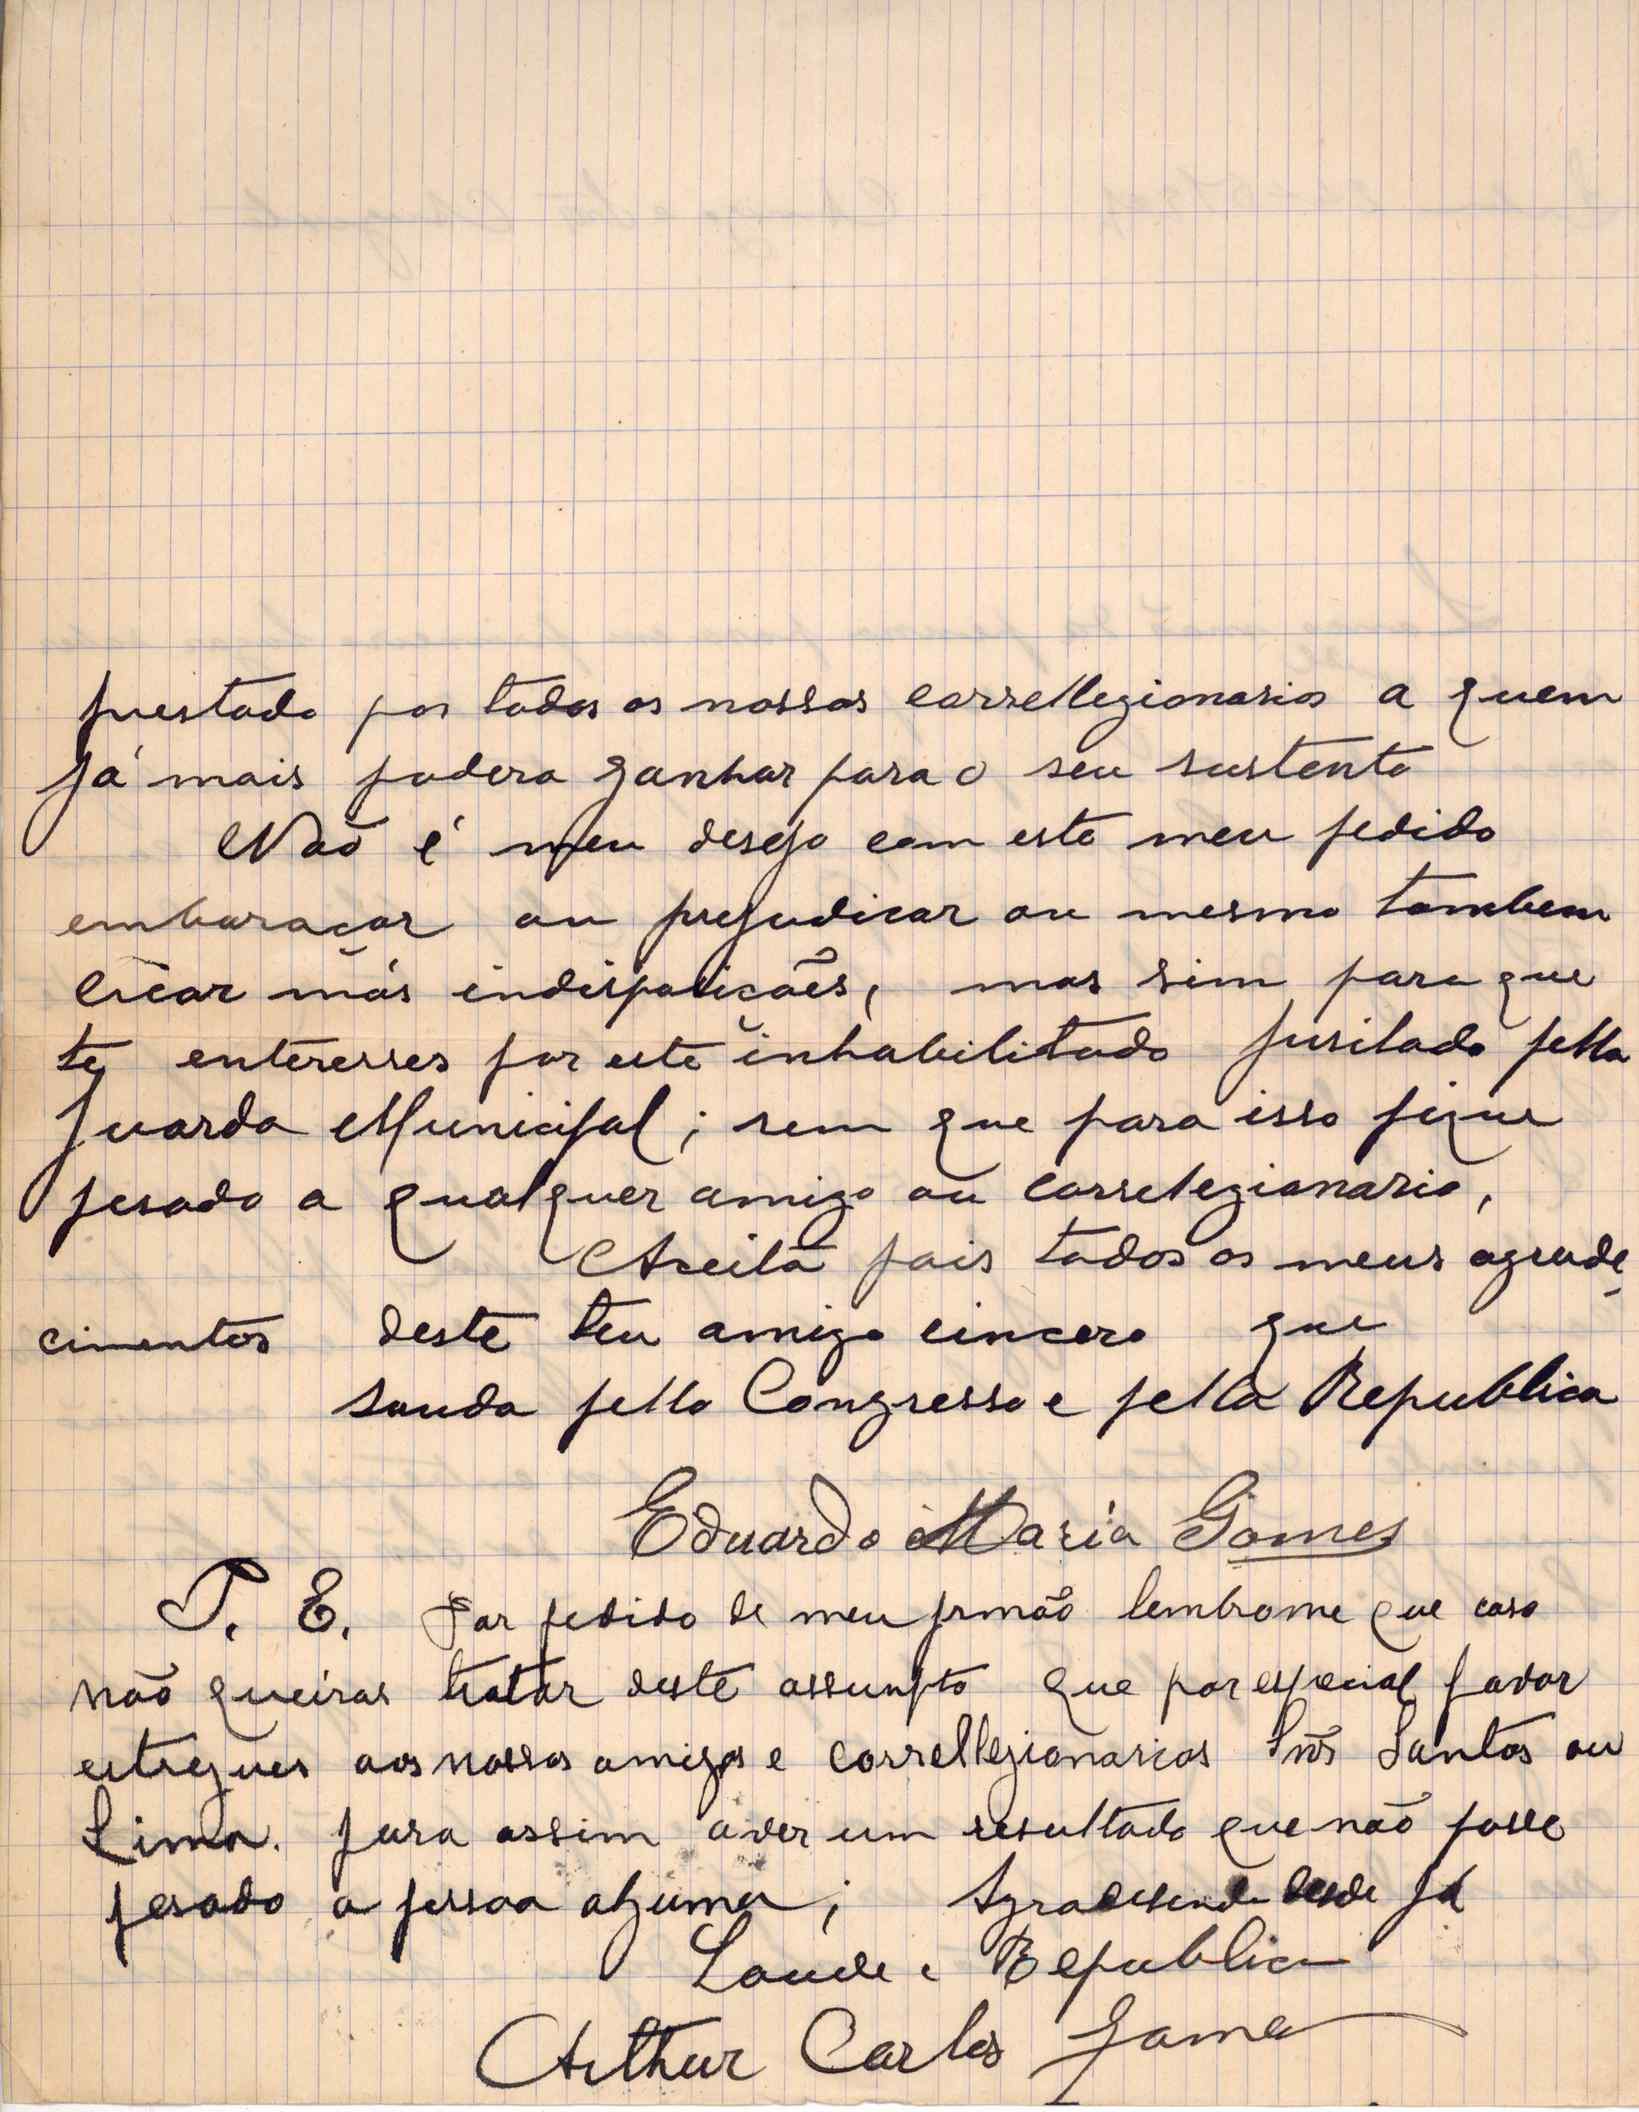 prestado por todos os nossos correllegionarios a quem
já mais podera ganhar para o seu sustento
Não é meu desejo com este meu pedido
embaraçar ou prejudicar ou mesmo tambem
criar más indisposições, mas sim para que
te enteresses por este inhabilitado fusilado pella
Guarda Municipal; sem que para isso fique
pesado a qualquer amigo ou correlegionario,
Aceita pois todos os meus agrade
cimentos deste teu amigo cincero que
sauda pello Congresso e pella Republica
Eduardo Maria Gomes
P. E. Por pedido de meu jrmão lembrome que caso
não queiras tratar deste assumpto que por especial favor
entregues aos nossos amigos e correllegionarios Snrs Santos ou
Lima. para assim aver um resultado que não fosse
pesado a pessoa alguma; Agradesendo desde já
Saude e Republica
Arthur Carlos Gomes